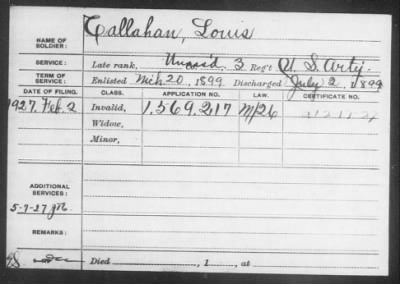 NAME OF SOLDIER: Callahan, Louis
SERVICE: Late rank, Unass'd, 3 Reg't U. S. Arty.
TERM OF SERVICE: Enlisted Mch 20, 1899 Discharged July 2, 1899
DATE OF FILING. CLASS. APPLICATION NO. LAW. CERTIFICATE NO.
1927. Feb. 2 Invalid, 1,569,217 M/26
Widow,
Minor,
ADDITIONAL SERVICES:
5-7-27
REMARKS:
Died , 1 , at